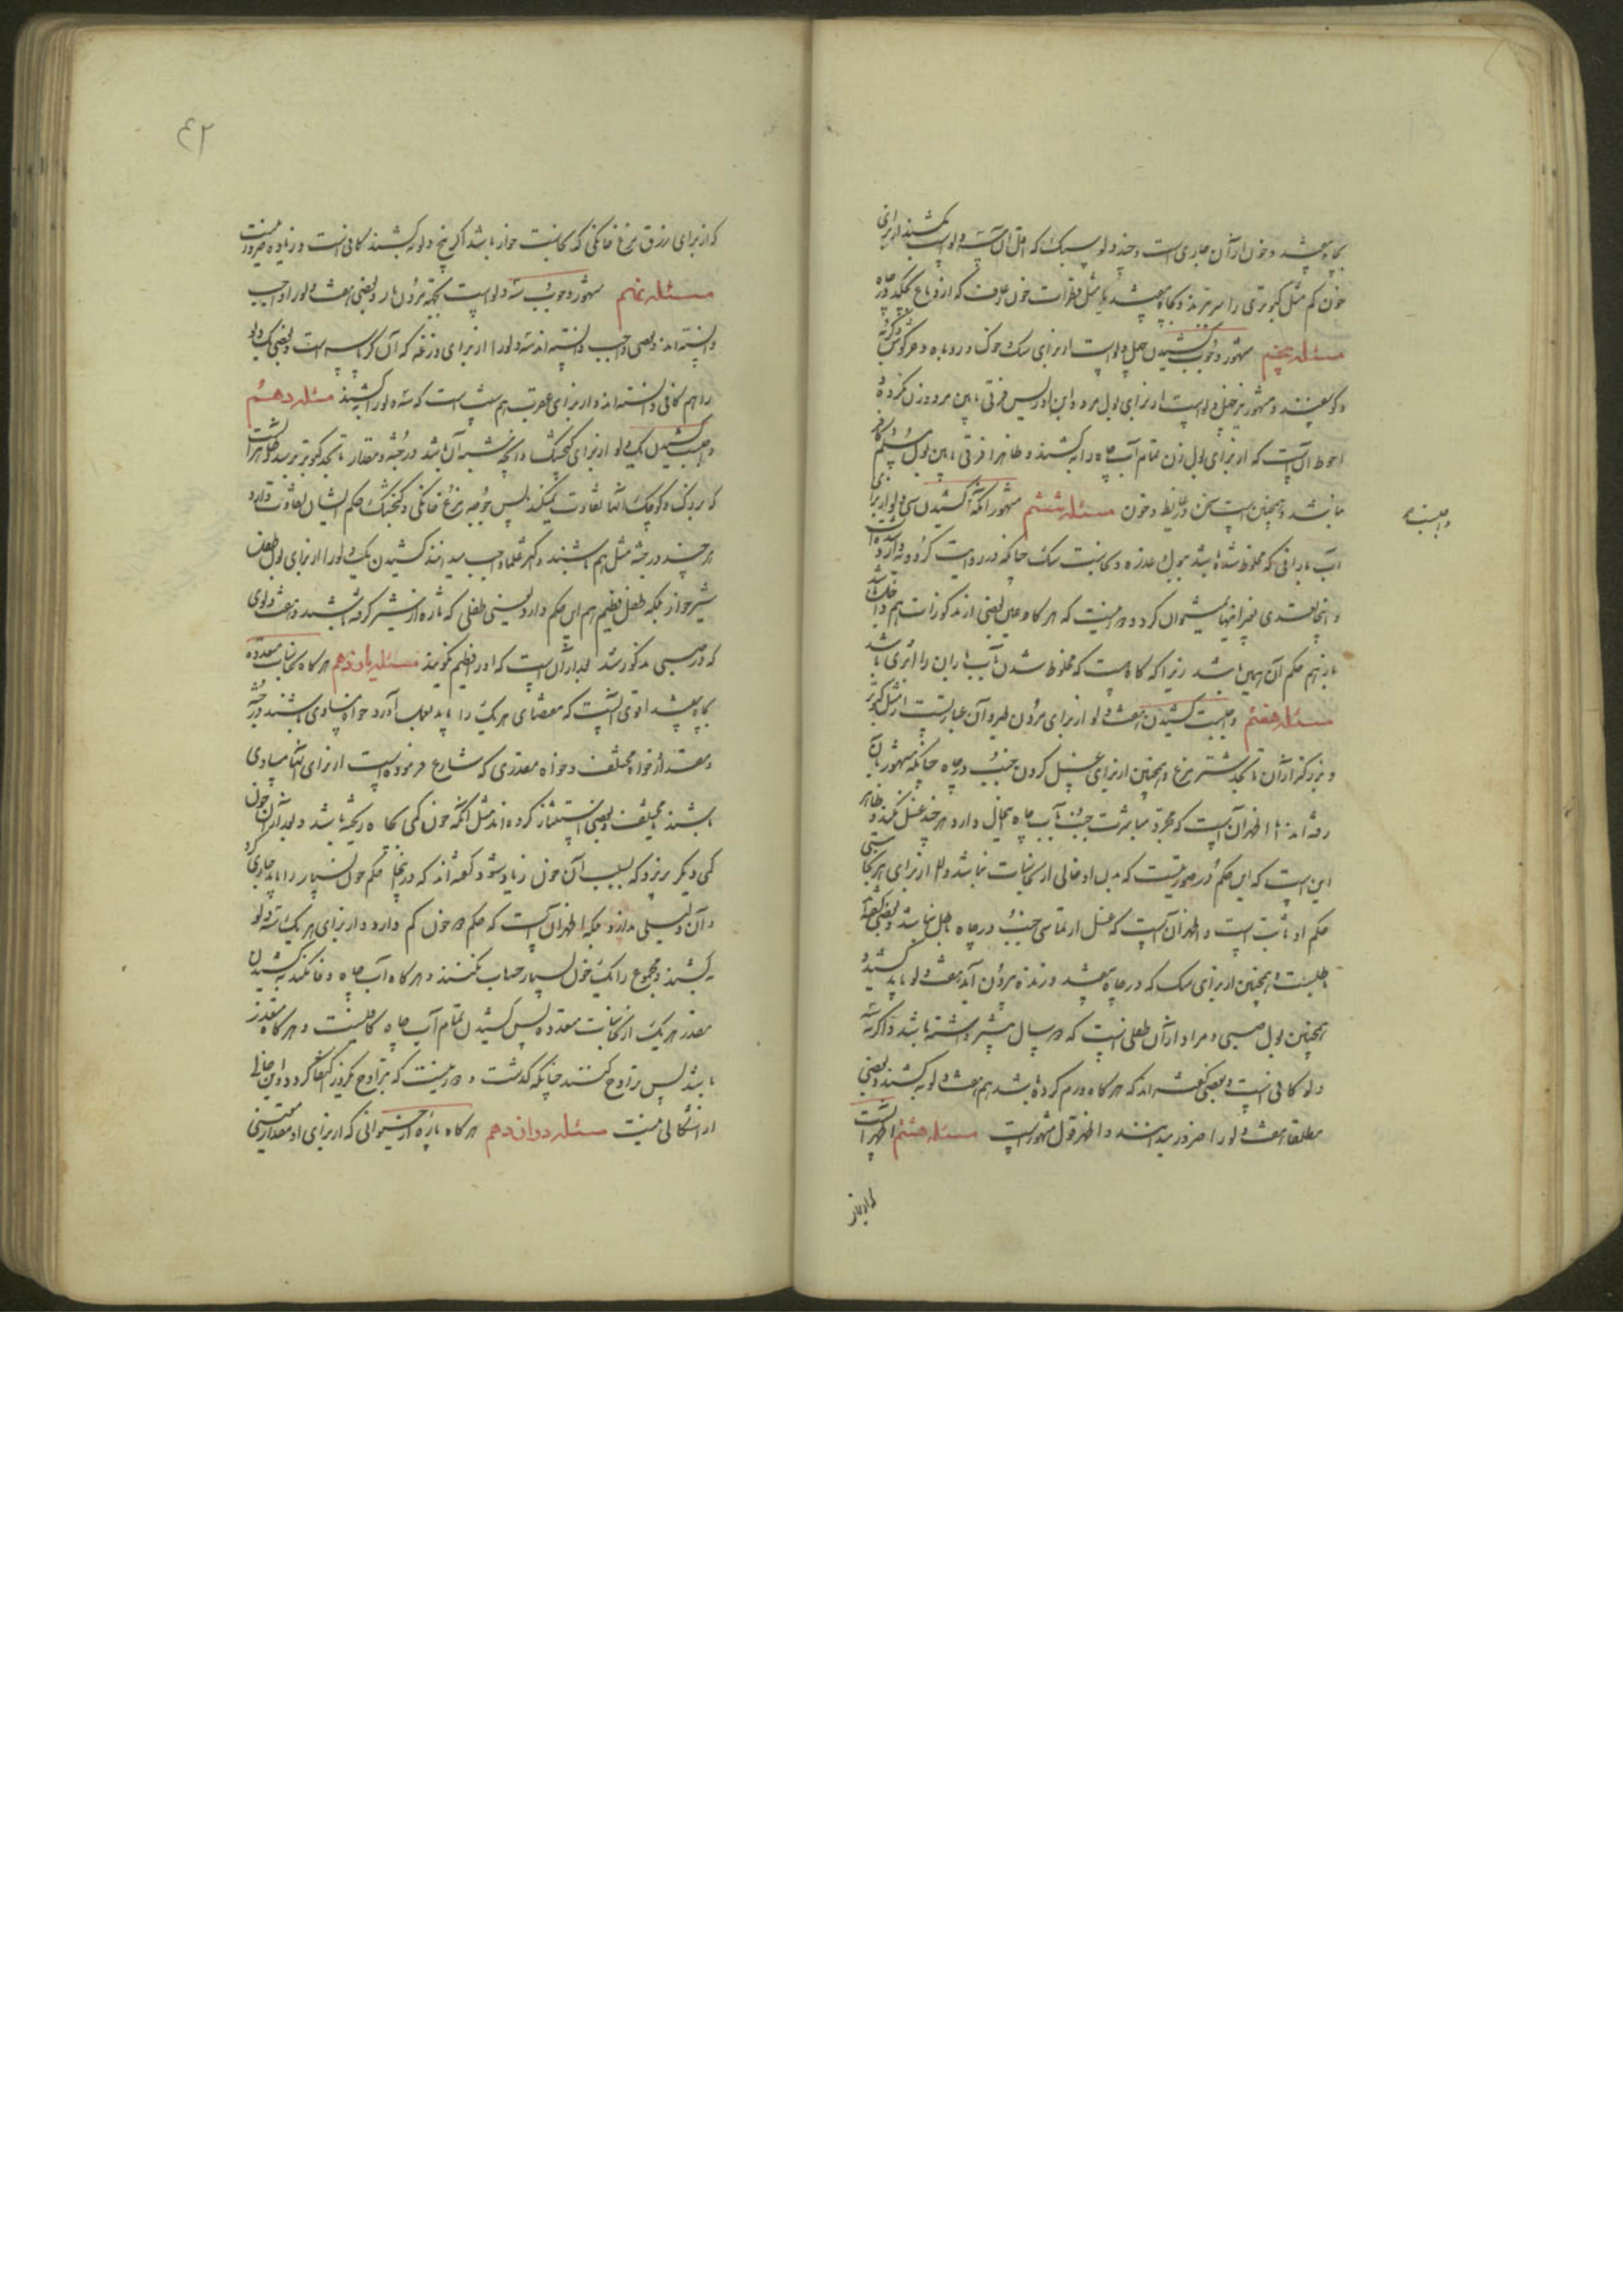 بچاه بیفتد و خون از آن جاری است و چند دلو سبک که اقل آن سه دلو است بکشند از برای
خون کم مثل کبوتری را سر ببرند و بچاه بیفتد یا مثل قطرات خون رعاف که از دماغ بچکد در چاه
مسئله پنجم مشهور وجوب کشیدن چهل دلو است از برای سگ و خوک و روباه و خرگوش و گربه
و گوسفند و مشهور نیز چهل دلو است از برای بول مرد و ابن ادریس فرقی مابین مرد و زن نکرده
احوط آن است که از برای بول زن تمام آب چاه را بکشند و ظاهرا فرقی مابین بول مسلم و کافر
نباشد و همچنین است سخن در غایط و خون مسئله ششم مشهور آنکه کشیدن سی دلو از برای
آب بارانی که مخلوط شده باشد ببول و عذره و نجاست سگ چنانکه در روایت کردویه وارد شده است
و از اینجا تعدی بغیر اینها نمیتوان کرد و دور نیست که هر گاه عین بعضی از مذکورات هم داخل باشد
باز هم حکم آن همین باشد زیرا که گاه هست که مخلوط شدن بآب باران را اثری باشد
مسئله هفتم واجبست کشیدن هفت دلو از برای مردن طیر و آن عبارتست از مثل کبوتر
و بزرگتر از آن تا بحد شتر مرغ و همچنین از برای غسل کردن جنب در چاه چنانکه مشهور بآن
رفته‌اند اما اظهر آن است که مجرد مباشرت جنب بآب چاه همین حال دارد هر چند غسل نکند و ظاهر
این است که این حکم در صورتیست که بدن او خالی از نجاسات باشد والا از برای هر نجاستی
حکم او ثابت است و اظهر آن است که غسل ارتماسی جنب در چاه باطل نباشد و بعضی گفته‌اند
باطلست و همچنین از برای سگ که در چاه بیفتد و زنده بیرون آید هفت دلو باید کشید و
همچنین بول صبی و مراد از آن طفلی است که دو سال بیشتر داشته باشد و اگر سه
دلو کافی است و بعضی گفته‌اند که هر گاه ورم کرده باشد هم هفت دلو بکشند و بعضی
مطلقا هفت دلو را ضرور میدانند و اظهر قول مشهور است مسئله هشتم اظهر آنست
که از برای
و اجلیت
٤٢
که از برای زرق مرغ خانگی که نجاست خوار باشد اگر پنج دلو بکشند کافی است و زیاده ضرور نیست
مسئله نهم مشهور وجوب سه دلو است بجهة مردن مار و بعضی هفت دلو را واجب
دانسته‌اند و بعضی واجب دانسته‌اند سه دلو را از برای وزغه که آن کرباسه است و بعضی یک دلو
را هم کافی دانسته‌اند و از برای عقرب هم سنت است که سه دلو را بکشند مسئله دهم
واجبست کشیدن یک دلو از برای گنجشک و آنچه شبیه آن باشد در جثه و مقدار تا بحد کبوتر نرسد و ظاهر آنست
که بزرگ و کوچک آنها تفاوت نمیکند پس جوجه مرغ خانگی و گنجشک حکم ایشان تفاوت دارد
هر چند در جثه مثل هم باشند و اکثر علما واجب میدانند کشیدن یک دلو را از برای بول طفل
شیرخوار بلکه طفل فطیم هم این حکم دارد یعنی طفلی که تازه از شیر گرفته باشند و هفت دلوی
که در صبی مذکور شد بعد از آن است که او را فطیم گویند مسئله یازدهم هر گاه نجاسات متعدده
بچاه بیفتد اقوی آنست که مقتضای هر یک را باید بعمل آورد خواه مساوی باشند در جثه
و مقدار و خواه مختلف و خواه مقدری که شارع فرموده است از برای آنها مساوی
باشند یا مختلف و بعضی استثنا کرده‌اند مثل آنکه خون کمی بچاه ریخته باشد و بعد از آن خون
کمی دیگر بریزد که بسبب آن خون زیاد شود گفته‌اند که در اینجا حکم خون بسیار را باید جاری کرد
و آن دلیلی ندارد بلکه اظهر آن است که حکم دو خون کم دارد و از برای هر یک سه دلو
بکشند و مجموع را یک خون بسیار حساب نکنند و هر گاه آب چاه وفا نکند بکشیدن
مقدر هر یک از نجاسات متعدده پس کشیدن تمام آب چاه کافیست و هر گاه متعذر
باشد پس تراوح کنند چنانکه گذشت و دور نیست که بتراوح یکروز اکتفا کرد و این خالی
از اشکالی نیست مسئله دوازدهم هر گاه پاره از حیوانی که از برای او مقدار معینی